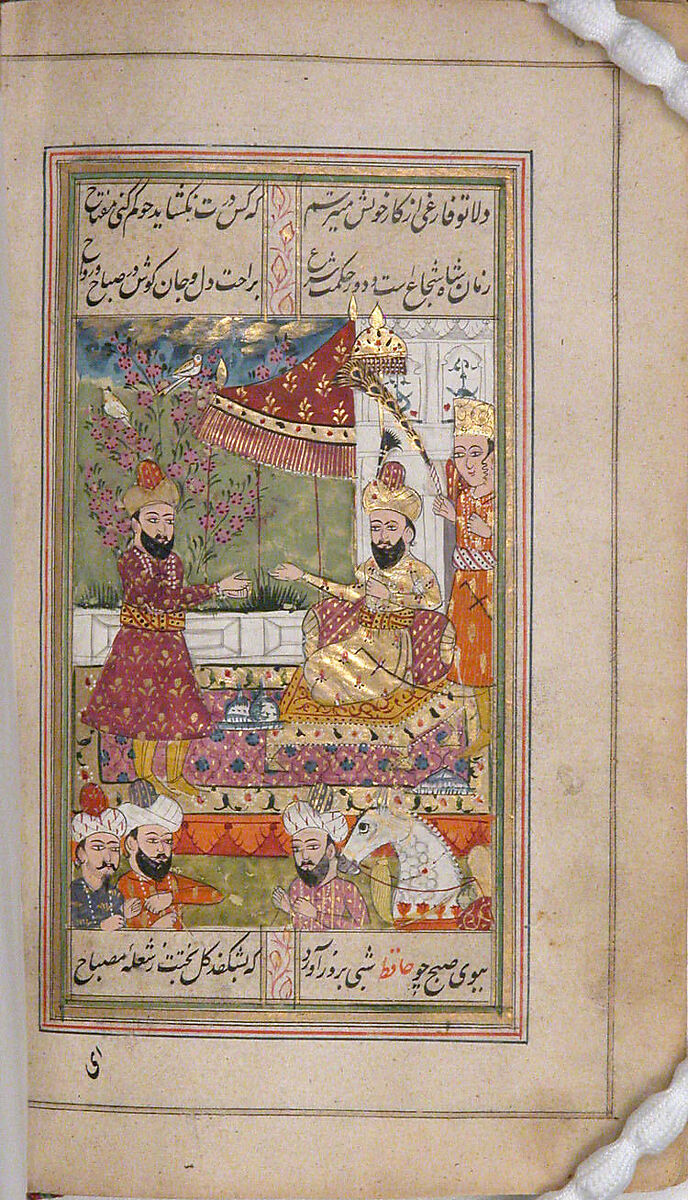 دلا تو فارغی از کار خویش میترسم
که کس درت نکشاید چو گم کنی مفتاح
زمان شاه شجاع است و دور حکمت شرع
براحت دل و جان کوش در صباح و رواح
ببوی صبح چو حافظ شبی بروز آورد
که بشکفد کل بختت ز شعلهٔ مصباح
ای